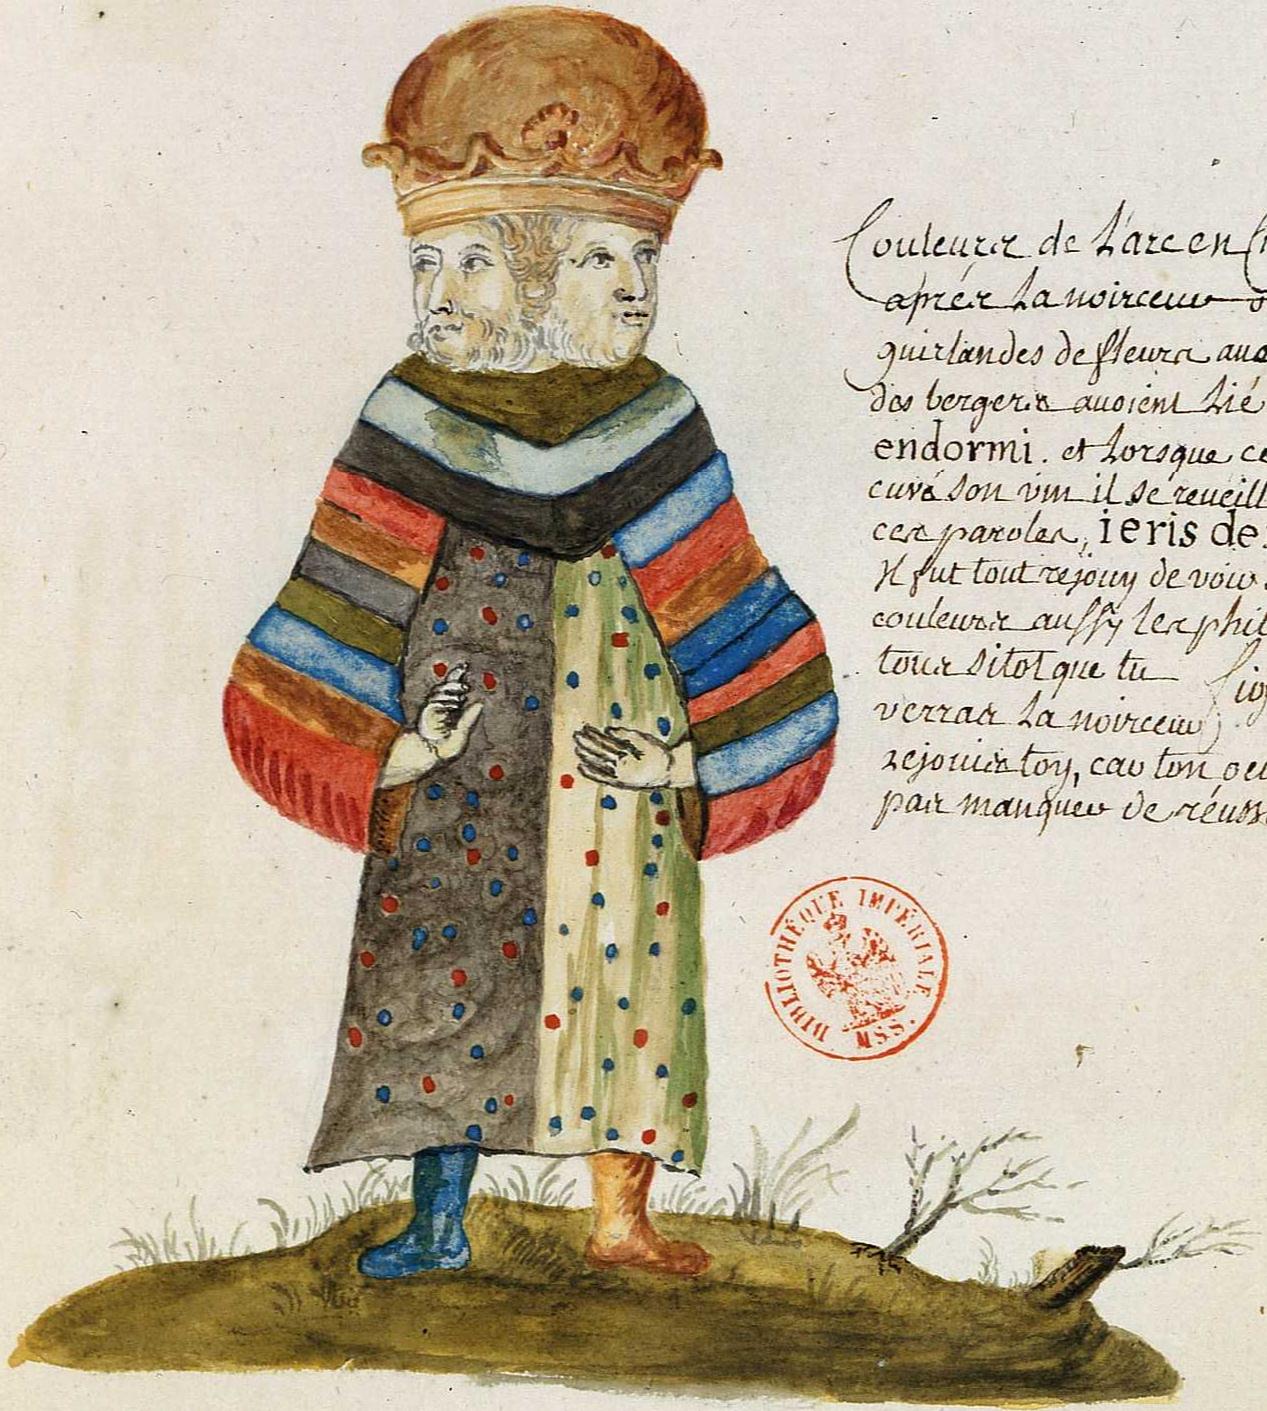 Couleurs de L'arc en
aprés La noirceur
guirlandes de fleurs
des bergers avoient Lié
endormi. et Lorsque ce
cuvé son vin il se reveill
ces paroles, ieris de
Il fut tout rejouy de voir
couleurs aussy les phil
tous sitot que tu
verras La noirceur
rejouis toy, car ton oeu
pas manquer de réuss
BIBLIOTHÉQUE IMPÉRIALE.
MSS.